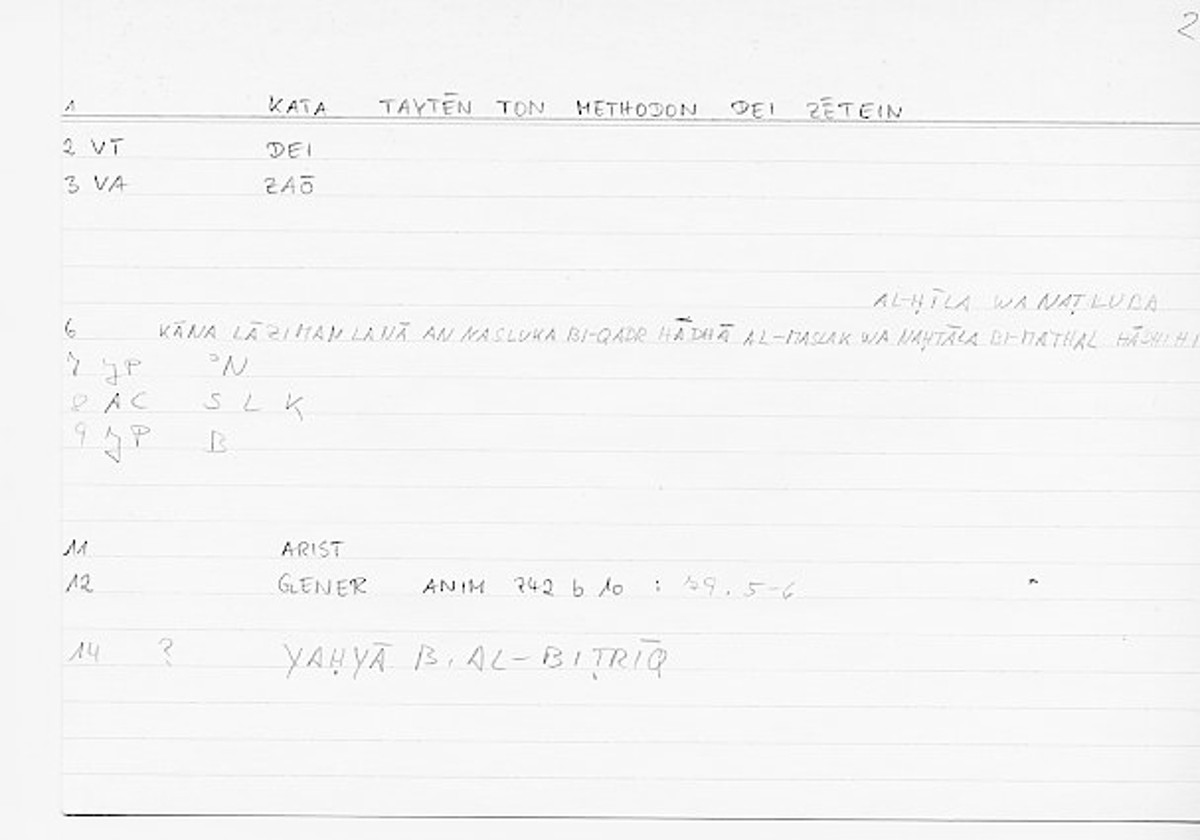 2
1 KATA TAYTĒN TON METHODON DEI ZĒTEIN
2 VT DEI
3 VA ZAŌ
AL-ḤĪLA WA NAṬLUBA
6 KĀNA LĀZIMAN LANĀ AN NASLUKA BI-QADR HĀDHĀ AL-MASLAK WA NAḤTĀLA BI-MATHAL HĀDHIHI
7 JP ᵓN
8 AC S L K
9 JP B
11 ARIST
12 GENER ANIM 742 b 10 : 79. 5-6
14 ? YAḤYĀ B. AL-BIṬRĪQ